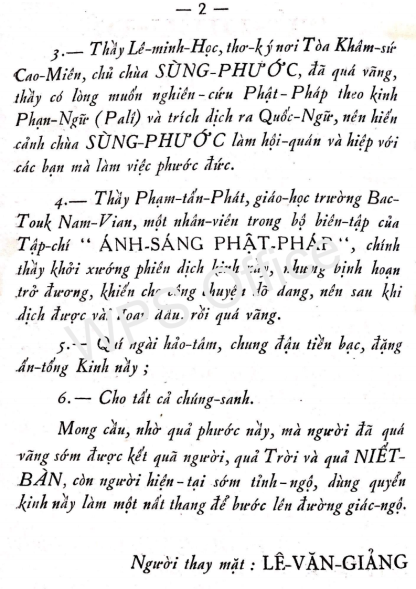 — 2 —
3.— Thầy Lê-minh-Học, thơ-ký nơi Tòa Khâm-sứ
Cao-Miên, chủ chùa SÙNG-PHƯỚC, đã quá vãng,
thầy có lòng muốn nghiên-cứu Phật-Pháp theo kinh
Phạn-Ngữ (Pali) và trích dịch ra Quốc-Ngữ, nên hiến
cảnh chùa SÙNG-PHƯỚC làm hội-quán và hiệp với
các bạn mà làm việc phước đức.
4.— Thầy Phạm-tấn-Phát, giáo-học trường Bac-
Touk Nam-Vian, một nhân-viên trong bộ biên-tập của
Tập-chí “ ÁNH-SÁNG PHẬT-PHÁP”, chính
thầy khởi xướng phiên dịch kinh này, nhưng bịnh hoạn
trở đương, khiến cho công chuyện dở dang, nên sau khi
dịch được vài đoạn đầu rồi quá vãng.
5.— Quí ngài hảo-tâm, chung đậu tiền bạc, đặng
ấn-tống Kinh này ;
6.— Cho tất cả chúng-sanh.
Mong cầu, nhờ quả phước này, mà người đã quá
vãng sớm được kết quả người, quả Trời và quả NIẾT-
BÀN, còn người hiện-tại sớm tỉnh-ngộ, dùng quyển
kinh này làm một nất thang để bước lên đường giác-ngộ.
Người thay mặt : LÊ-VĂN-GIẢNG
WPS Office